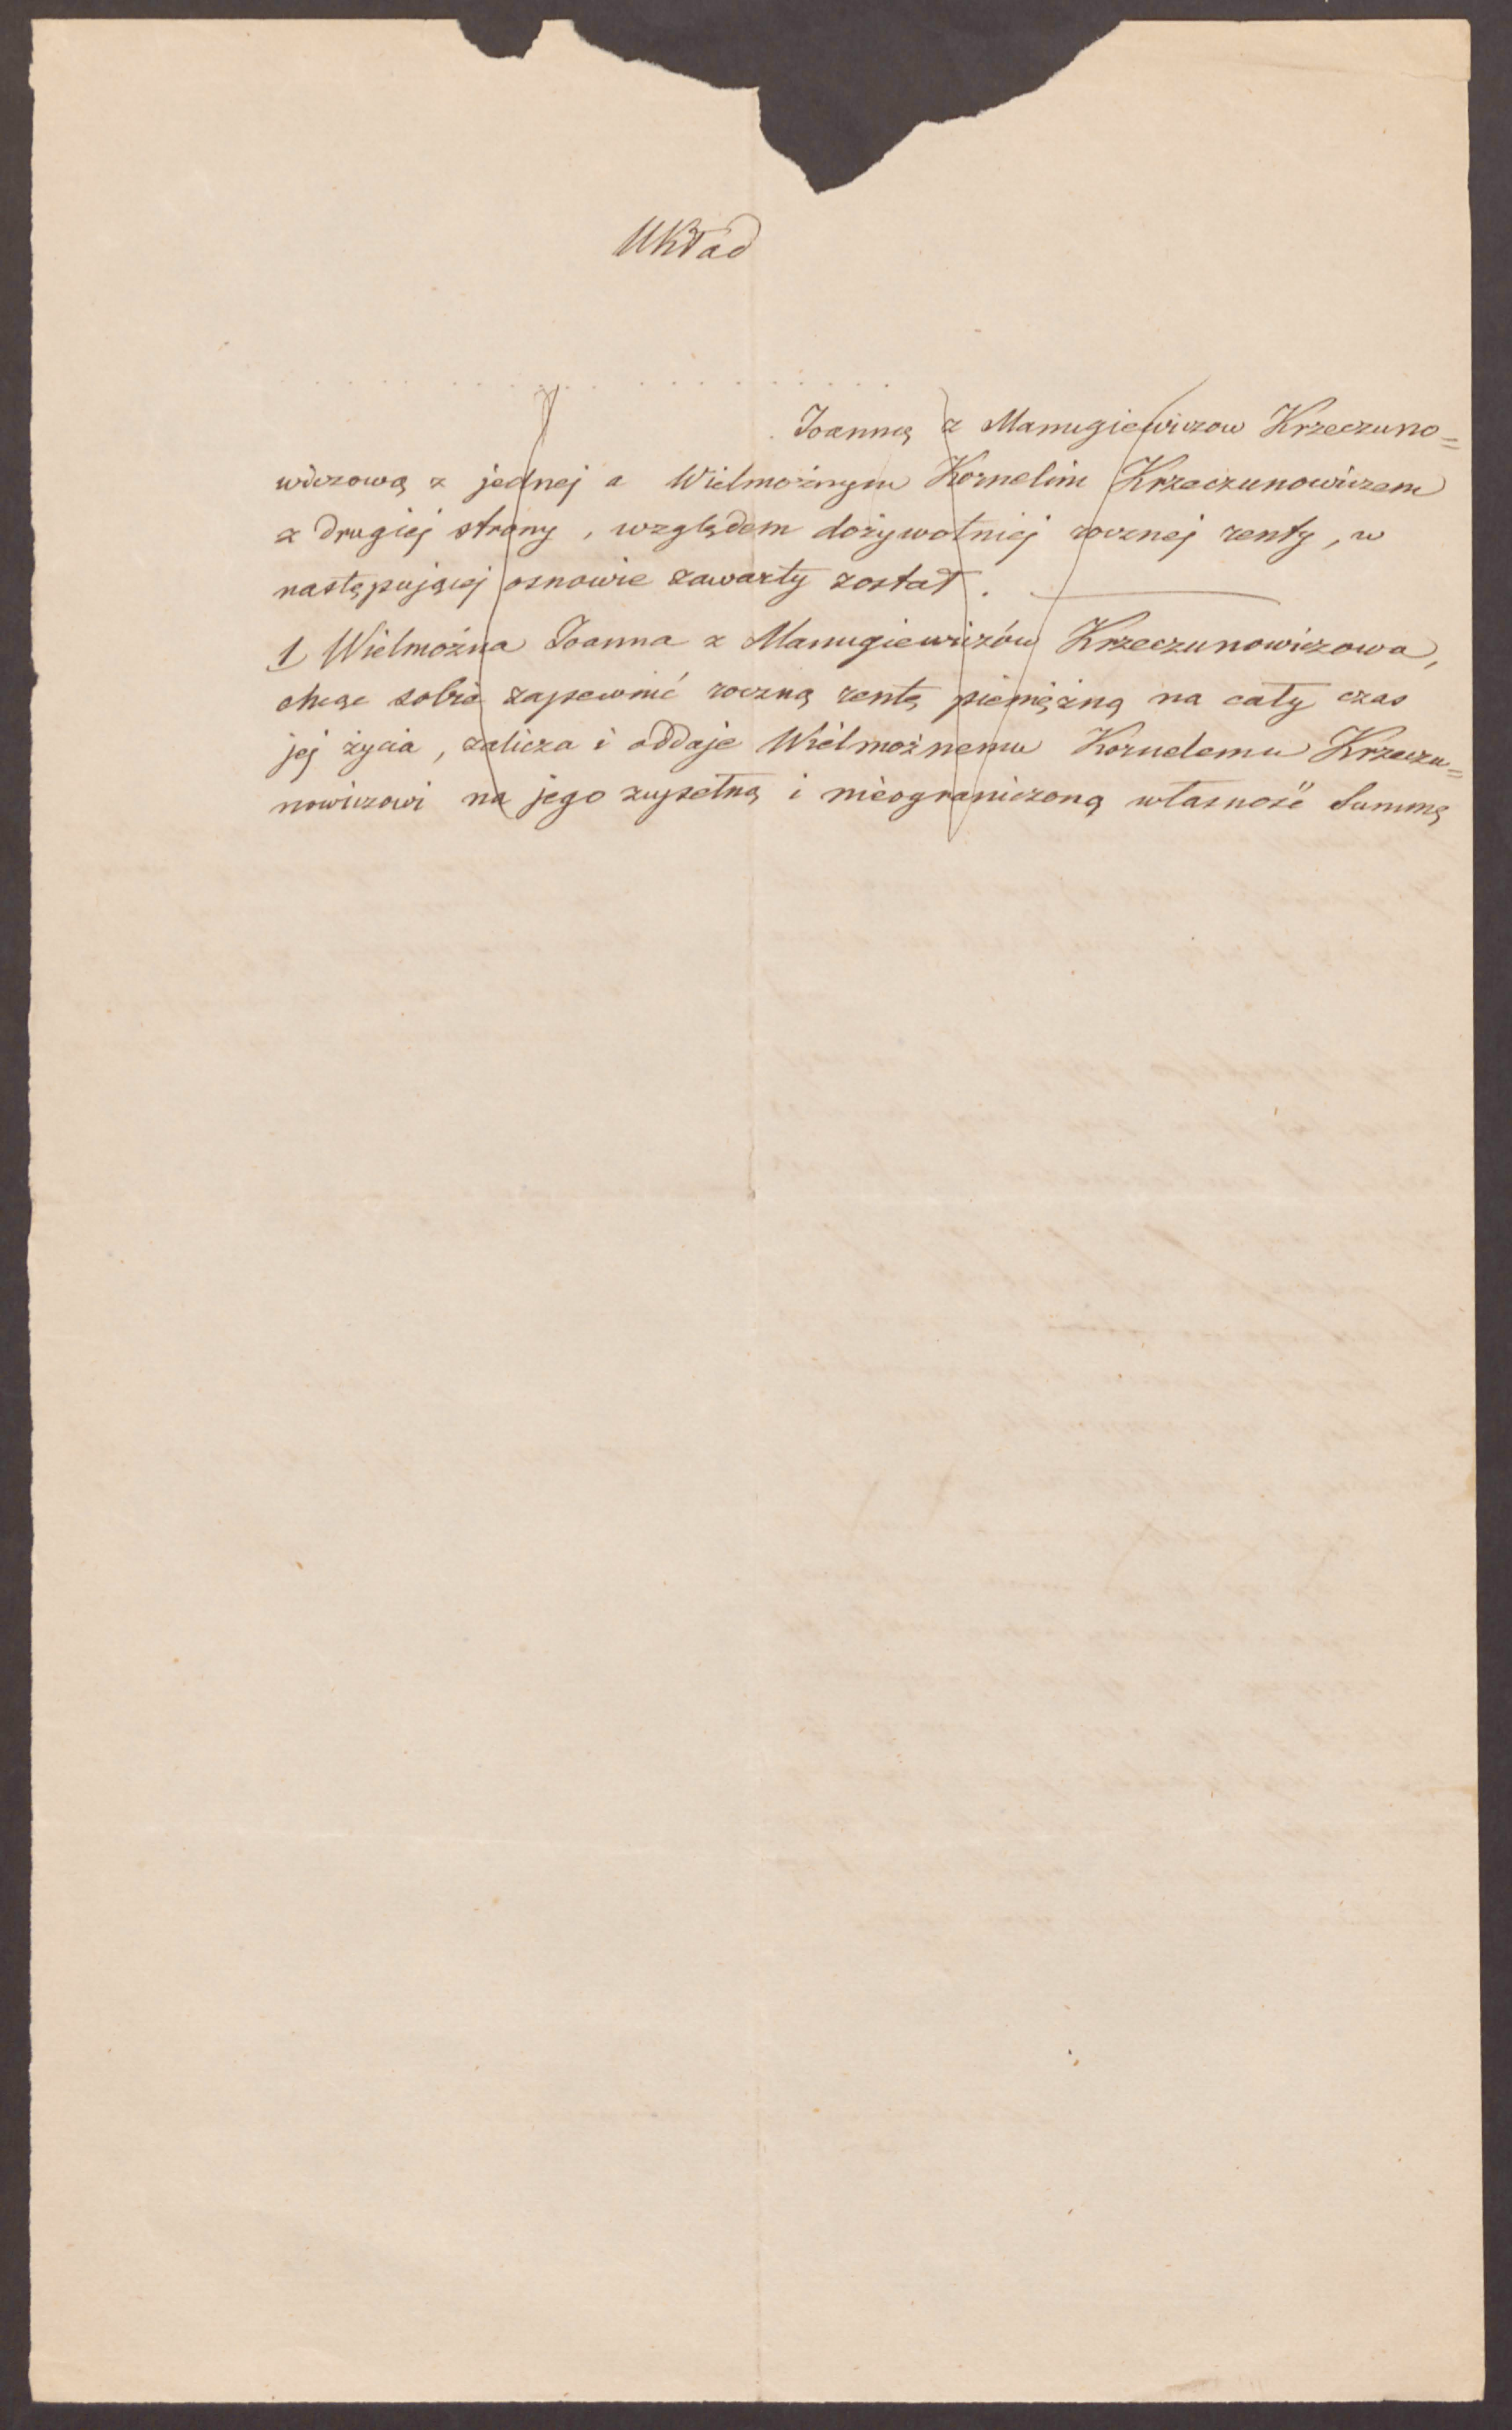 Układ
. . . . . . . . . . . . . . . . . . . . .
Joanną z Manugiewiczow Krzeczuno=
wiczową z jednej a Wielmożnym Kornelim Krzeczunowiczem
z drugiej strony, względem dożywotniej rocznej renty, w
następującej osnowie zawarty został.
1, Wielmożna Joanna z Manugiewiczów Krzeczunowiczowa,
chcąc sobie zapewnić roczną rentę pieniężną na cały czas
jej życia, zalicza i oddaje Wielmożnemu Kornelemu Krzeczu=
nowiczowi na jego zupełną i nieograniczoną własność Summę